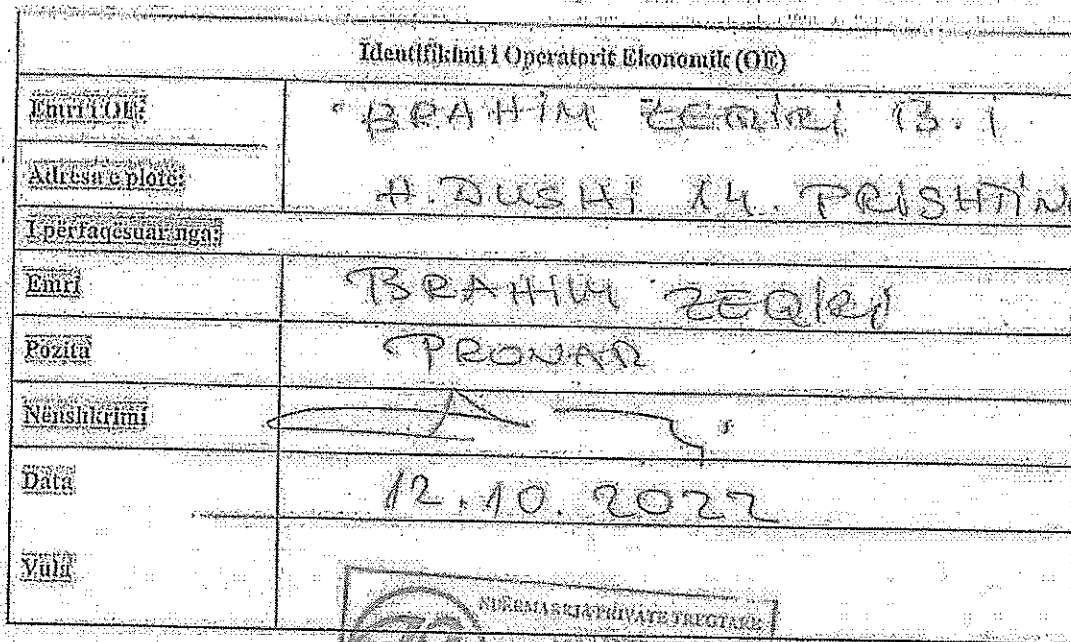 Identifikimi i Operatorit Ekonomik (OE)
Emri i OE: BRAHIM ZEQIRI B.I
Adresa e plotë: H. DUSHI 14. PRISHTIN
I përfaqësuar nga:
Emri BRAHIM ZEQIRI
Pozita PRONAR
Nënshkrimi
Data 12.10.2022
Vula
NDËRMARRJA PRIVATE TREGTARE